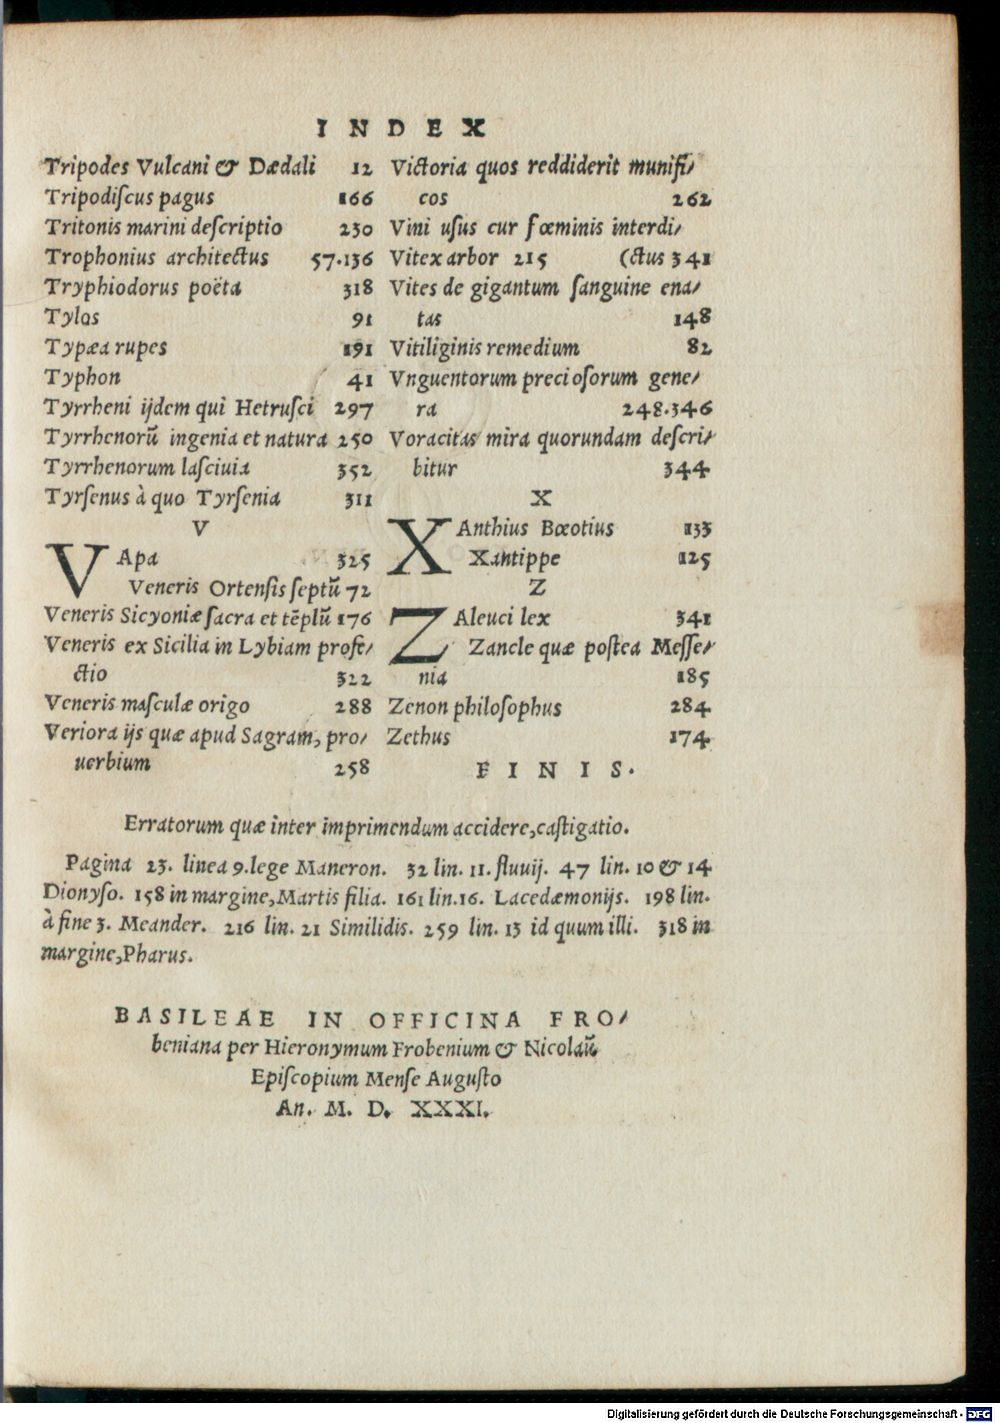 INDEX
Tripodes Vulcani & Dædali 12
Tripodiſcus pagus 166
Tritonis marini deſcriptio 230
Trophonius architectus 57.136
Tryphiodorus poëta 318
Tylos 91
Typæa rupes 191
Typhon 41
Tyrrheni ijdem qui Hetruſci 297
Tyrrhenorũ ingenia et natura 250
Tyrrhenorum laſciuia 352
Tyrſenus à quo Tyrſenia 311
V
VApa 325
Veneris Ortenſis ſeptũ 72
Veneris Sicyoniæ ſacra et tẽplũ 176
Veneris ex Sicilia in Lybiam profe/
ctio 322
Veneris maſculæ origo 288
Veriora ijs quæ apud Sagram, pro/
uerbium 258
Victoria quos reddiderit munifi/
cos 262
Vini uſus cur fœminis interdi/
Vitex arbor 215 (ctus 341
Vites de gigantum ſanguine ena/
tas 148
Vitiliginis remedium 82
Vnguentorum precioſorum gene/
ra 248.346
Voracitas mira quorundam deſcri/
bitur 344
X
XAnthius Bœotius 133
Xantippe 125
Z
ZAleuci lex 341
Zancle quæ poſtea Meſſe/
nia 185
Zenon philoſophus 284
Zethus 174
FINIS.
Erratorum quæ inter imprimendum accidere, caſtigatio.
Pagina 23. linea 9. lege Maneron. 32 lin. 11. fluuij. 47 lin. 10 & 14
Dionyſo. 158 in margine, Martis filia. 161 lin. 16. Lacedæmonijs. 198 lin.
à fine 3. Meander. 216 lin. 21 Similidis. 259 lin. 13 id quum illi. 318 in
margine, Pharus.
BASILEAE IN OFFICINA FRO/
beniana per Hieronymum Frobenium & Nicolaũ
Epiſcopium Menſe Auguſto
An. M. D. XXXI.
Digitalisierung gefördert durch die Deutsche Forschungsgemeinschaft - DFG